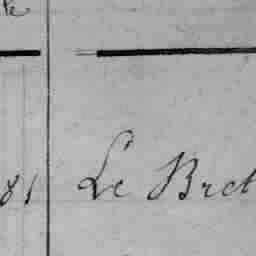 81 Le Bret